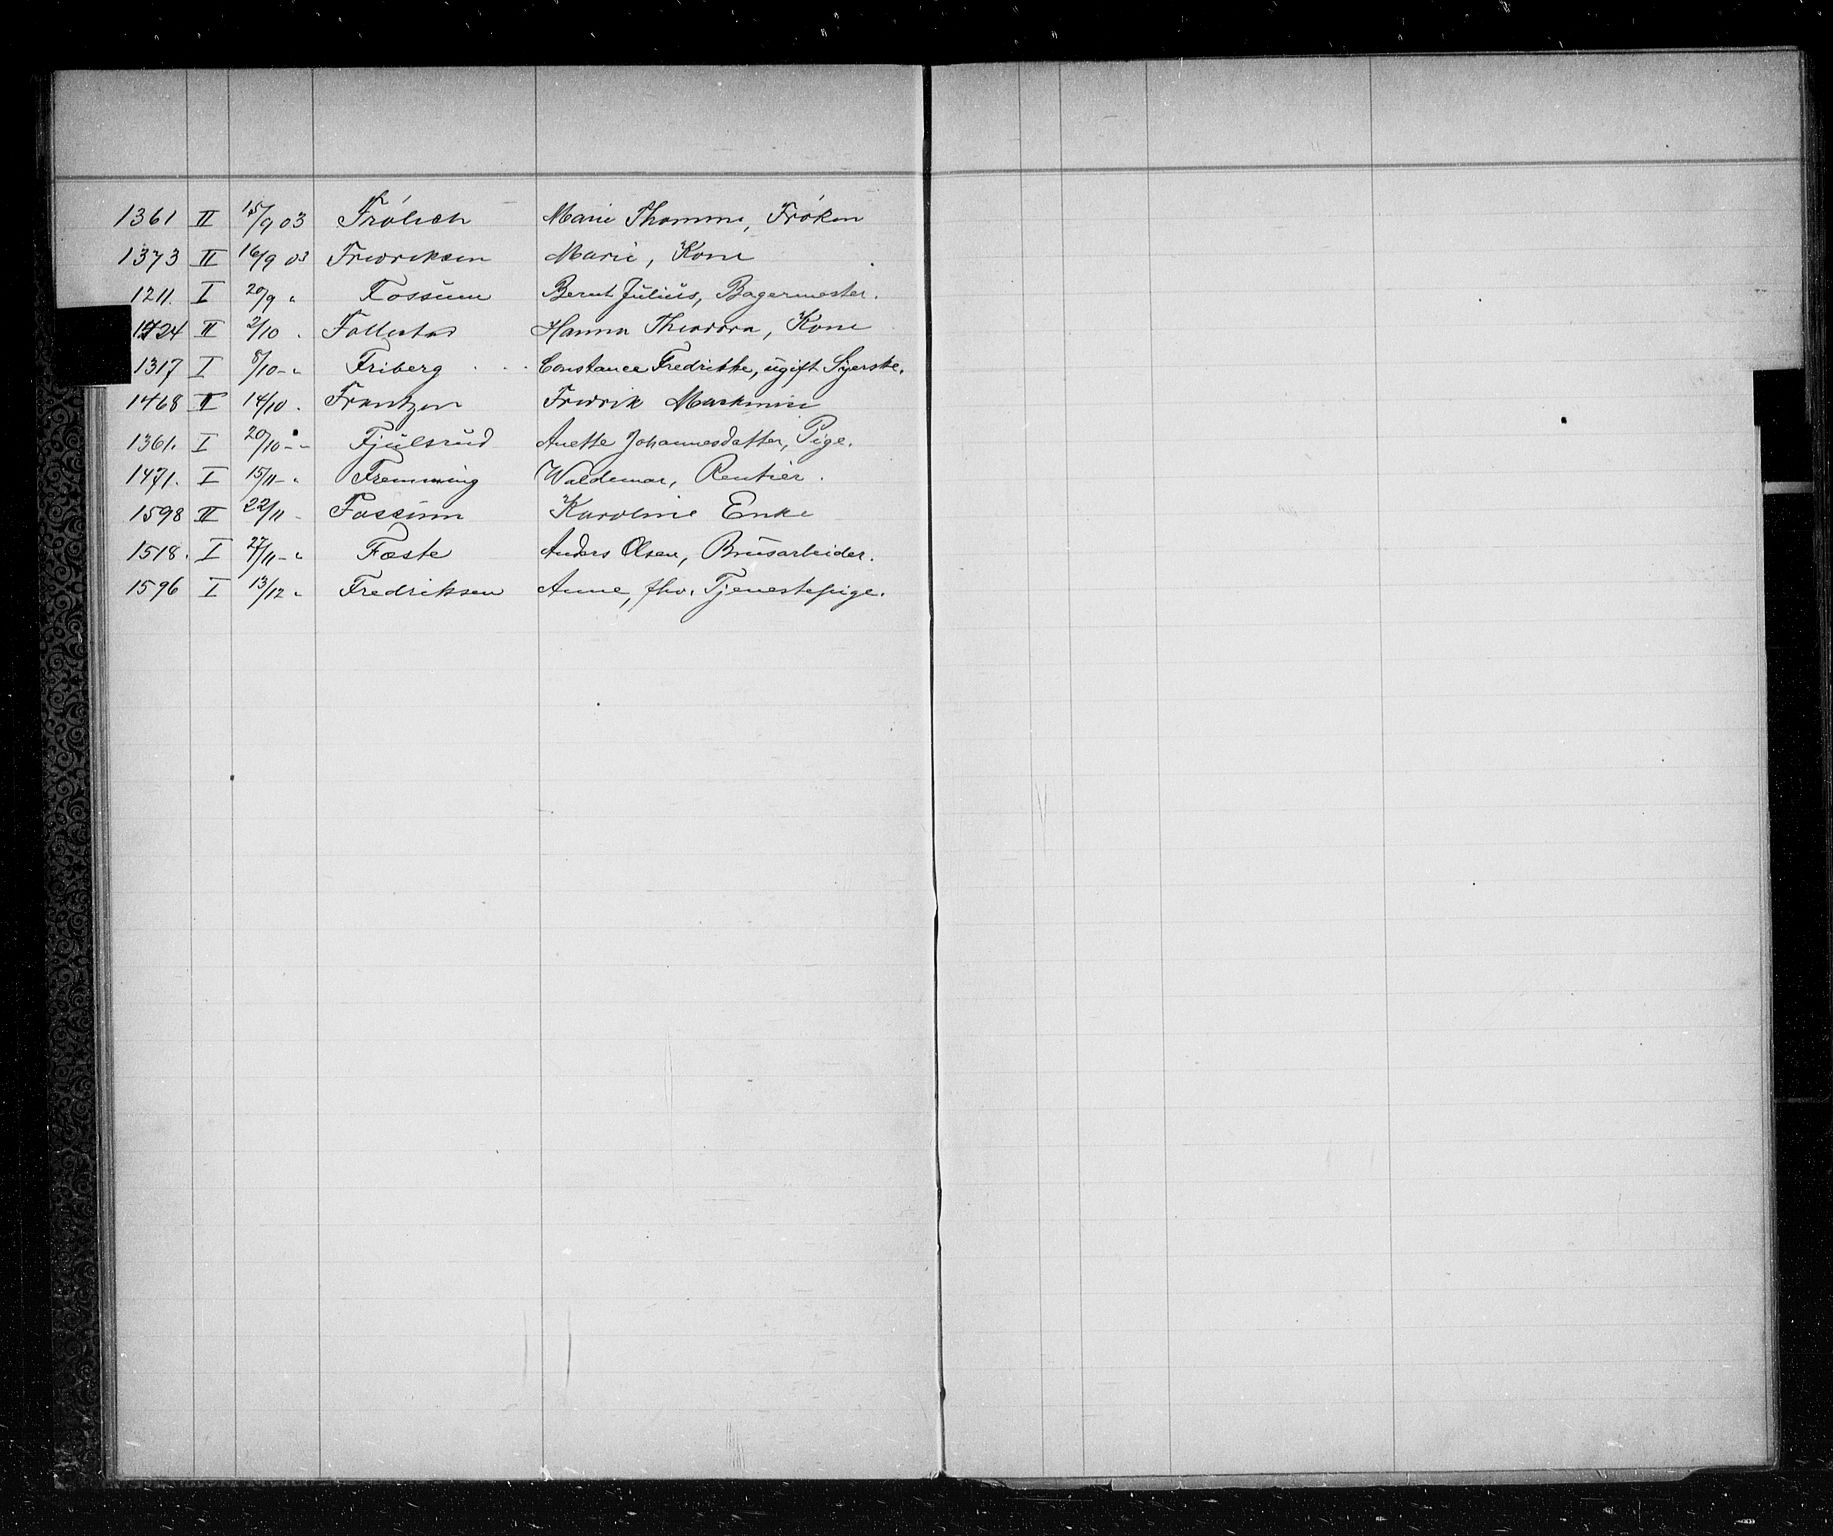 1361 II 15/9 03 Frølich Marie Thomine, Frøken
1373 II 16/9 03 Fredriksen Marie, Kone
1211. I 20/9 " Fossum Bernt Julius, Bagermester.
1424 II 2/10 . Follestad Hanna Theodora, Kone
1317 I 8/10 - " Friberg . . . Constance Fredrikke, ugift Syerske.
1468 II 14/10 . Frantzen Fredrik Maskinist
1361. I 20/10 - - Fjulsrud Anette Johannesdatter, Pige.
1471. I 15/11 - " Fremming Waldemar, Rentier.
1598 II 22/11 - Fossum Karoline Enke
1518. I 27/11 - " Fæste Anders Olsen, Brusarbeider.
1596 I 13/12 " Fredriksen Anne, fhv. Tjenestepige.